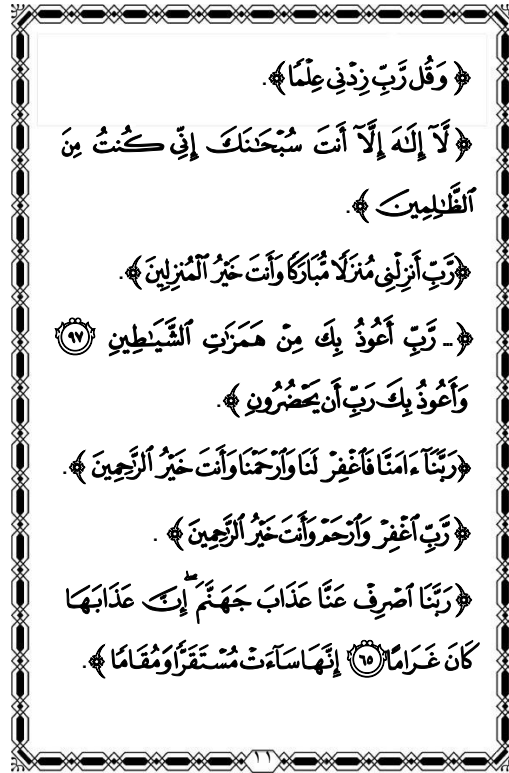 ﴿ وَقُل رَّبِّ زِدْنِى عِلْمًا ﴾.
﴿ لَّآ إِلَـٰهَ إِلَّآ أَنتَ سُبْحَـٰنَكَ إِنِّى كُنتُ مِنَ
ٱلظَّـٰلِمِينَ ﴾.
﴿رَّبِّ أَنزِلْنِى مُنزَلًا مُّبَارَكًا وَأَنتَ خَيْرُ ٱلْمُنزِلِينَ ﴾.
﴿ ـ رَّبِّ أَعُوذُ بِكَ مِنْ هَمَزَٰتِ ٱلشَّيَـٰطِينِ ٩٧
وَأَعُوذُ بِكَ رَبِّ أَن يَحْضُرُونِ ﴾.
﴿رَبَّنَآ ءَامَنَّا فَٱغْفِرْ لَنَا وَٱرْحَمْنَا وَأَنتَ خَيْرُ ٱلرَّٰحِمِينَ ﴾.
﴿ رَّبِّ ٱغْفِرْ وَٱرْحَمْ وَأَنتَ خَيْرُ ٱلرَّٰحِمِينَ ﴾ .
﴿رَبَّنَا ٱصْرِفْ عَنَّا عَذَابَ جَهَنَّمَ ۖ إِنَّ عَذَابَهَا
كَانَ غَرَامًا ٦٥ إِنَّهَا سَآءَتْ مُسْتَقَرًّا وَمُقَامًا ﴾.
١١